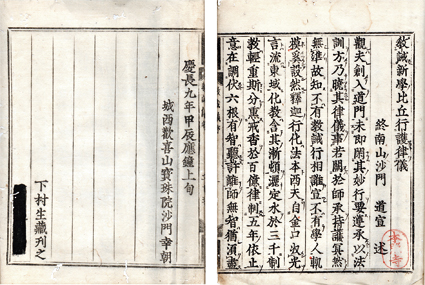 教誡新學比丘行護律儀
終南山沙門 道宣 述
觀夫創入道門未即閑其妙行要遵承以法
訓方乃曉其律儀事若闕於師承持護冥然
無准故知不有教誡行相誰宣不有學人軌
摸奚設然釋迦行化法本西天自金口收光
言流東域化教含其漸頓灑定水於三千制
教輕重斯分蕩戒香於百億律制五年依止
意在調伏六根有智聽許離師無智猶須盡
慶長九年甲辰應鐘上旬
城西歡喜山寶珠院沙門幸朝
下村生藏刊之